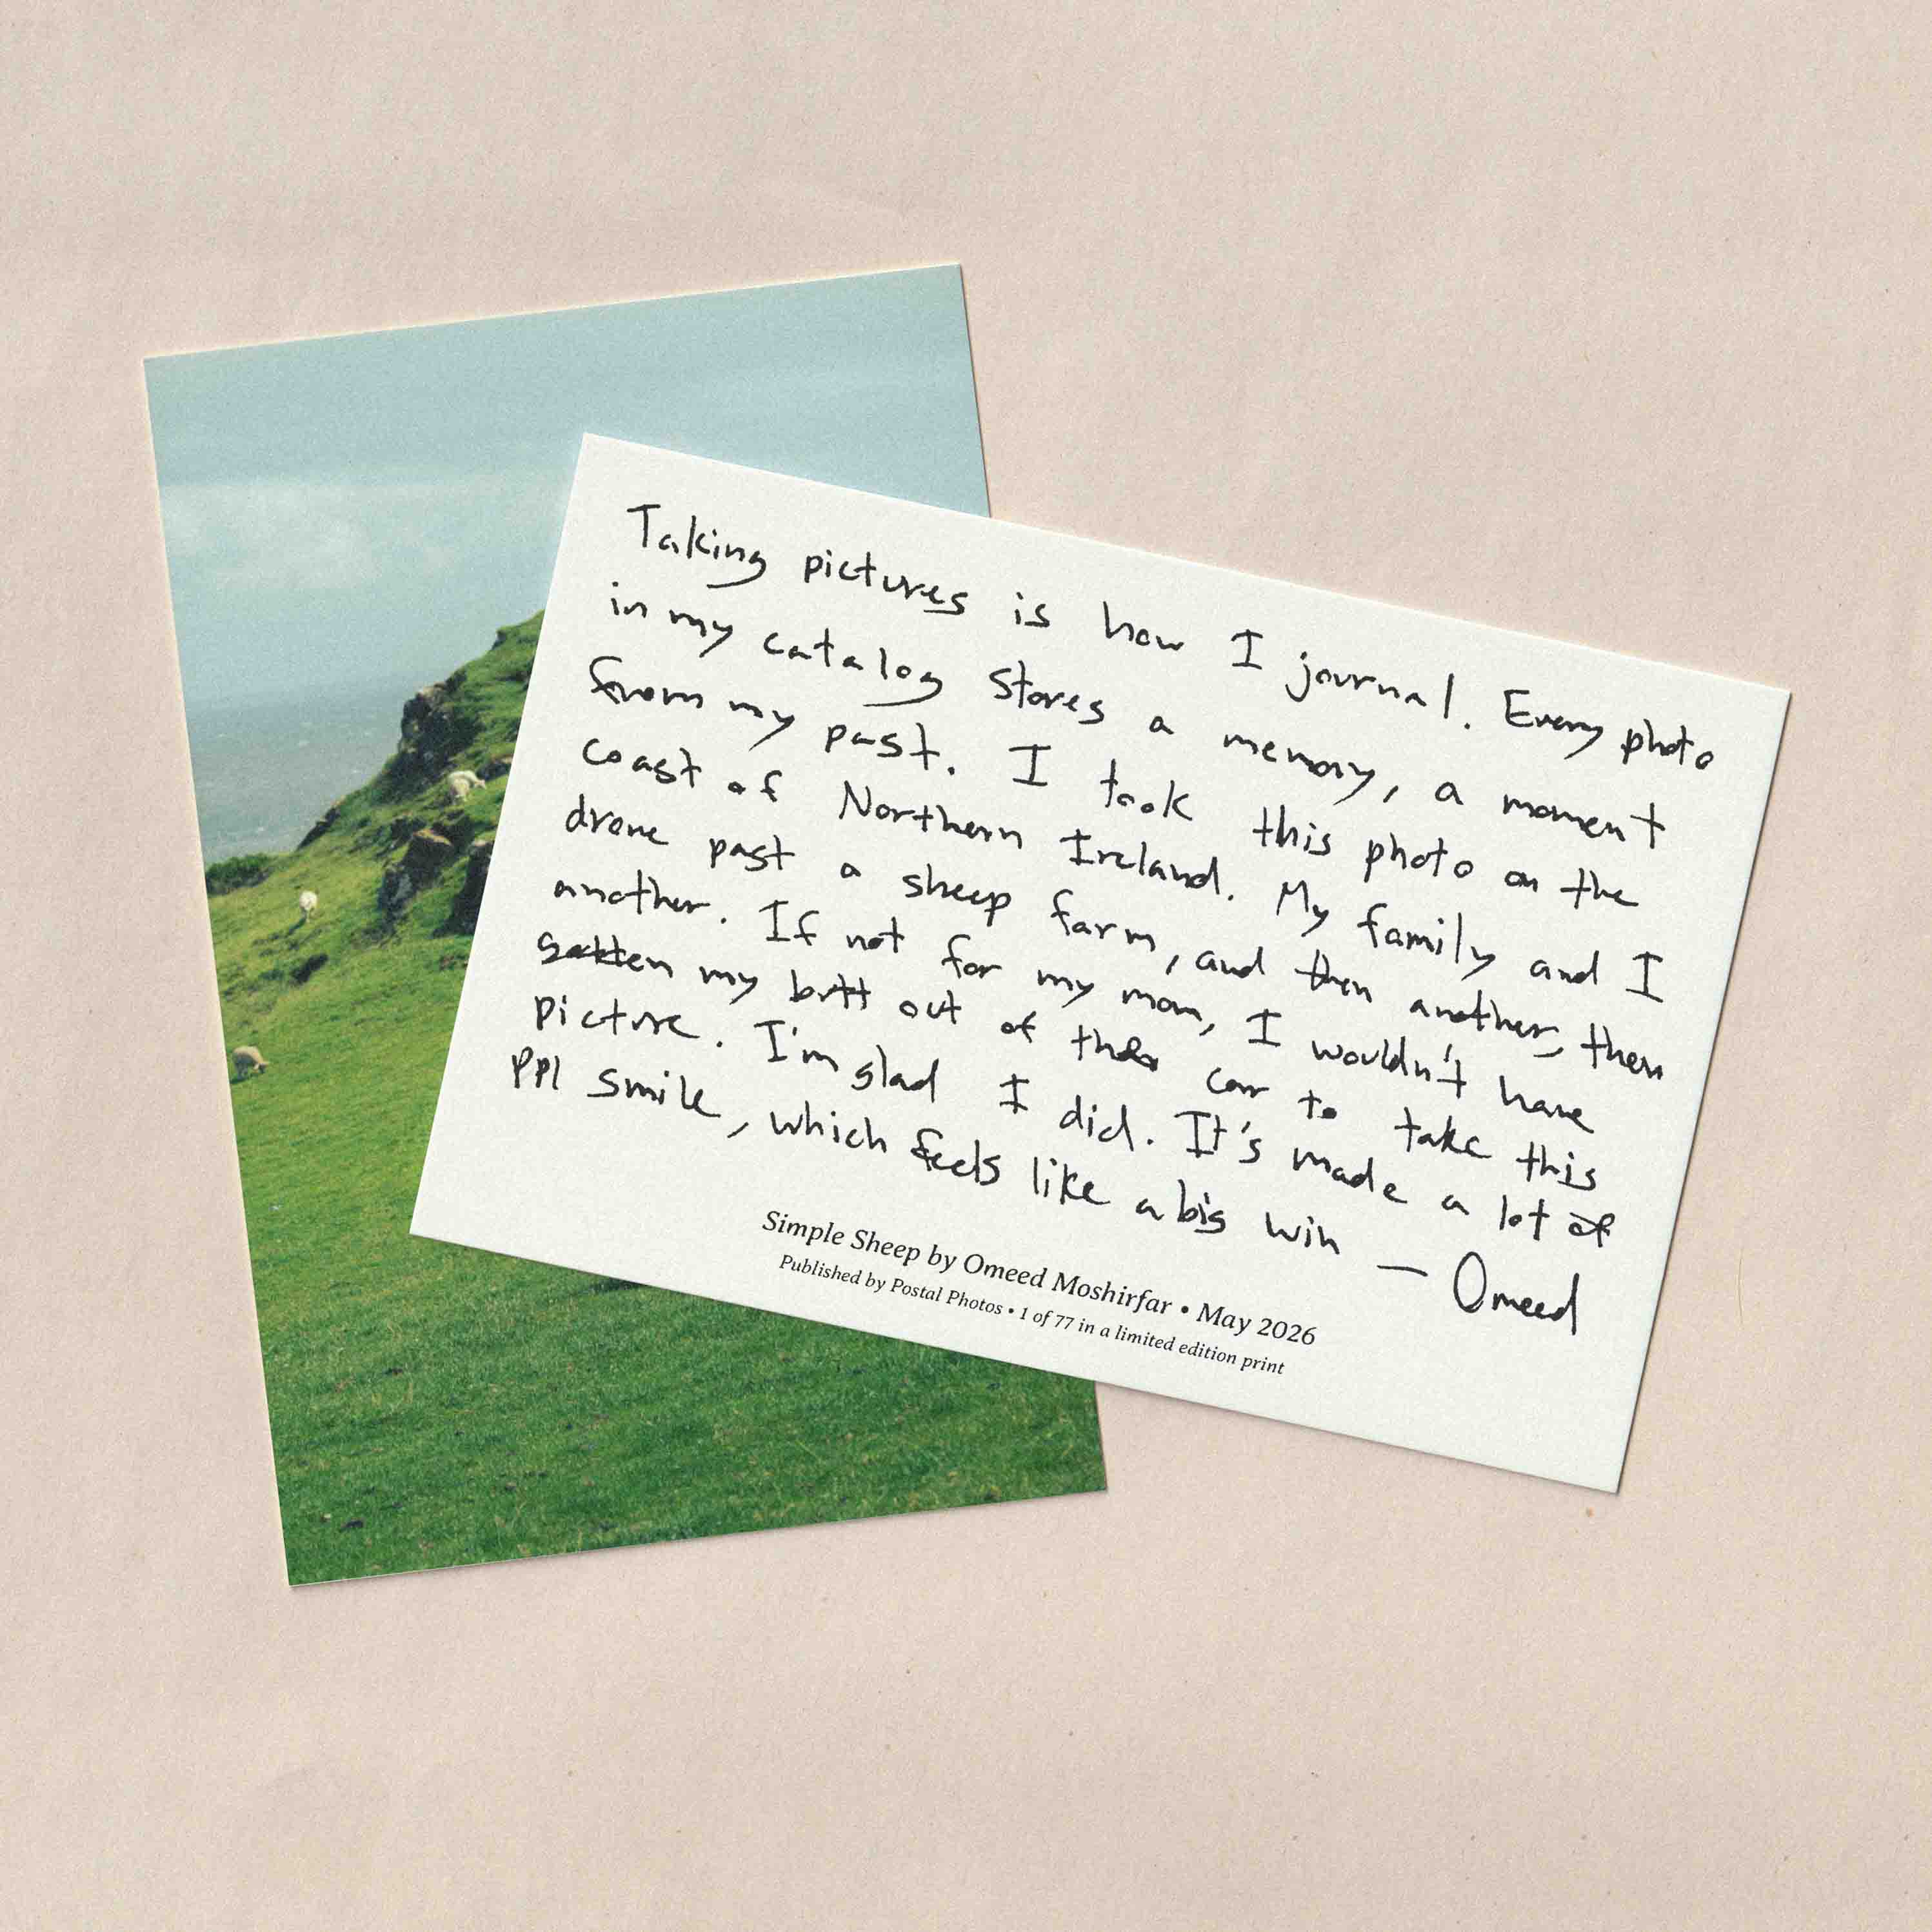 Taking pictures is how I journal. Every photo
in my catalog stores a memory, a moment
from my past. I took this photo on the
coast of Northern Ireland. My family and I
drove past a sheep farm, and then another, then
another. If not for my mom, I wouldn't have
gotten my butt out of the car to take this
picture. I'm glad I did. It's made a lot of
ppl smile, which feels like a big win — Omeed
Simple Sheep by Omeed Moshirfar • May 2026
Published by Postal Photos • 1 of 77 in a limited edition print